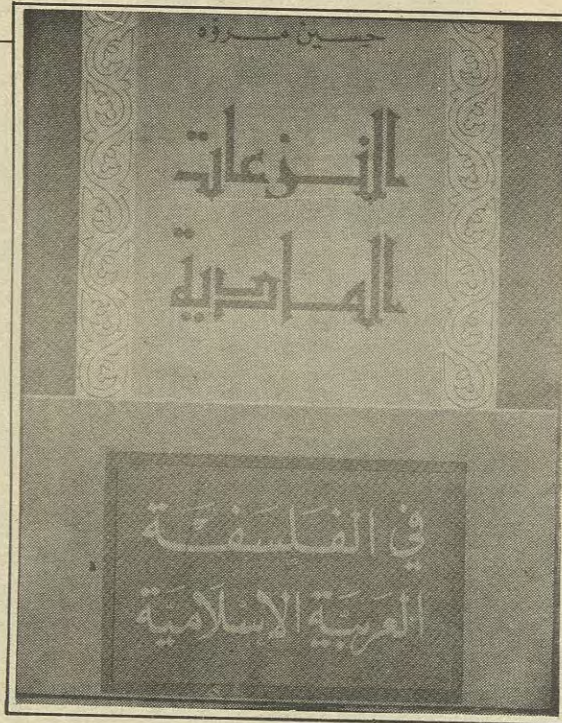 حسين مروّه
النزعات
المادية
في الفَلسَفَة
العَرَبيَّة الإسْلاميَّة